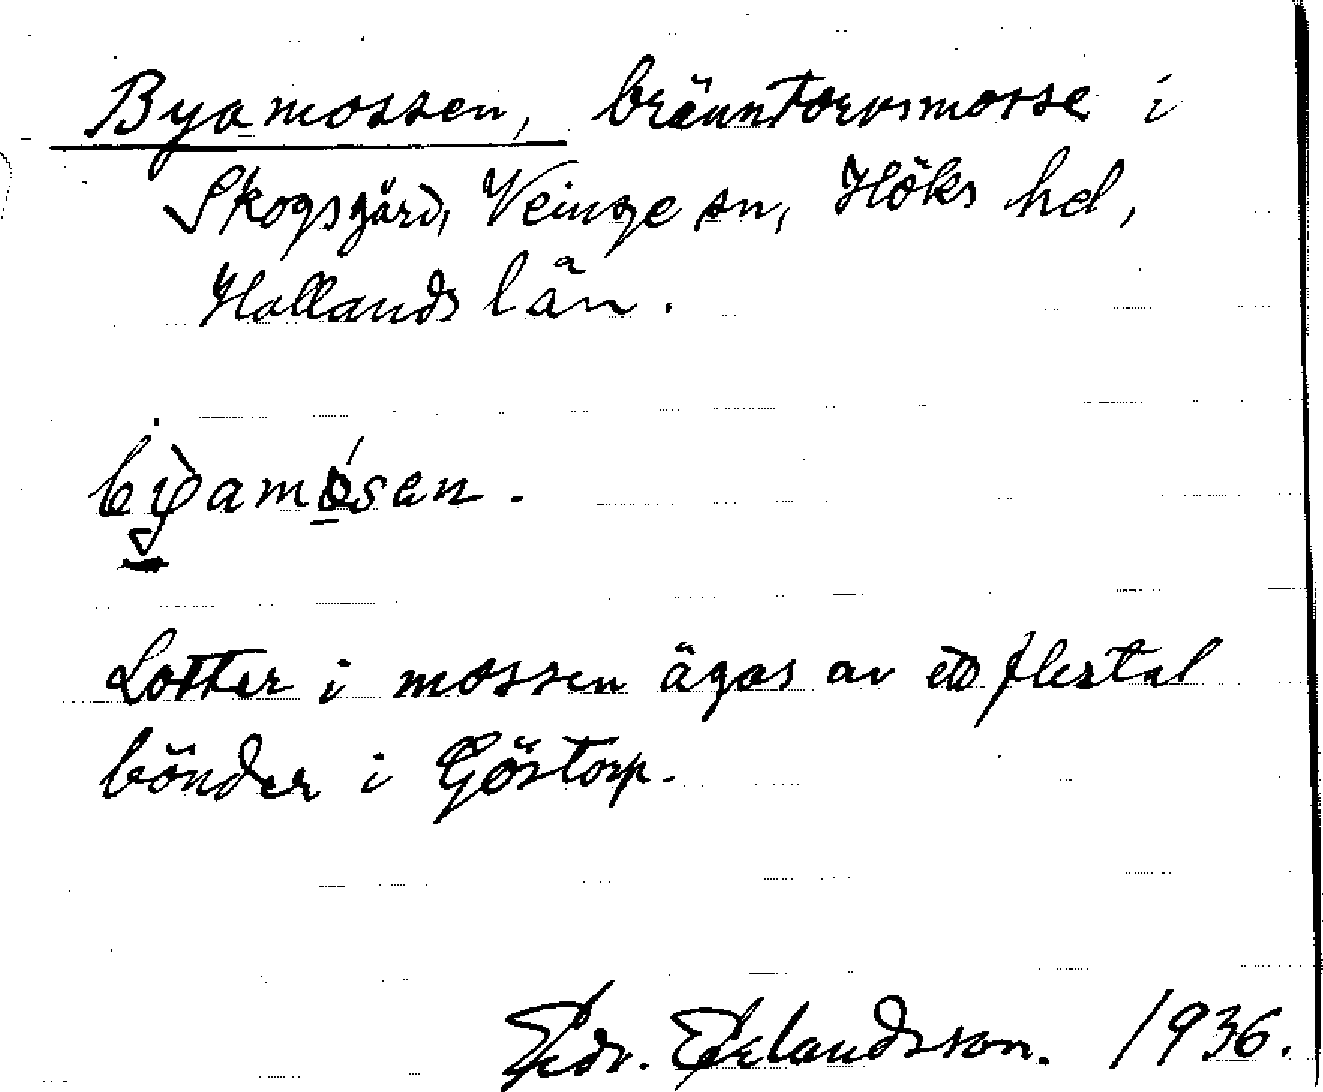 Byamossen, bränntorvsmosse i
Skogsgård, Veinge sn, Höks hd,
Hallands län.
Lotter i mossen ägas av ett flertal
bönder i Göstorp.
Erlandsson. 1936.